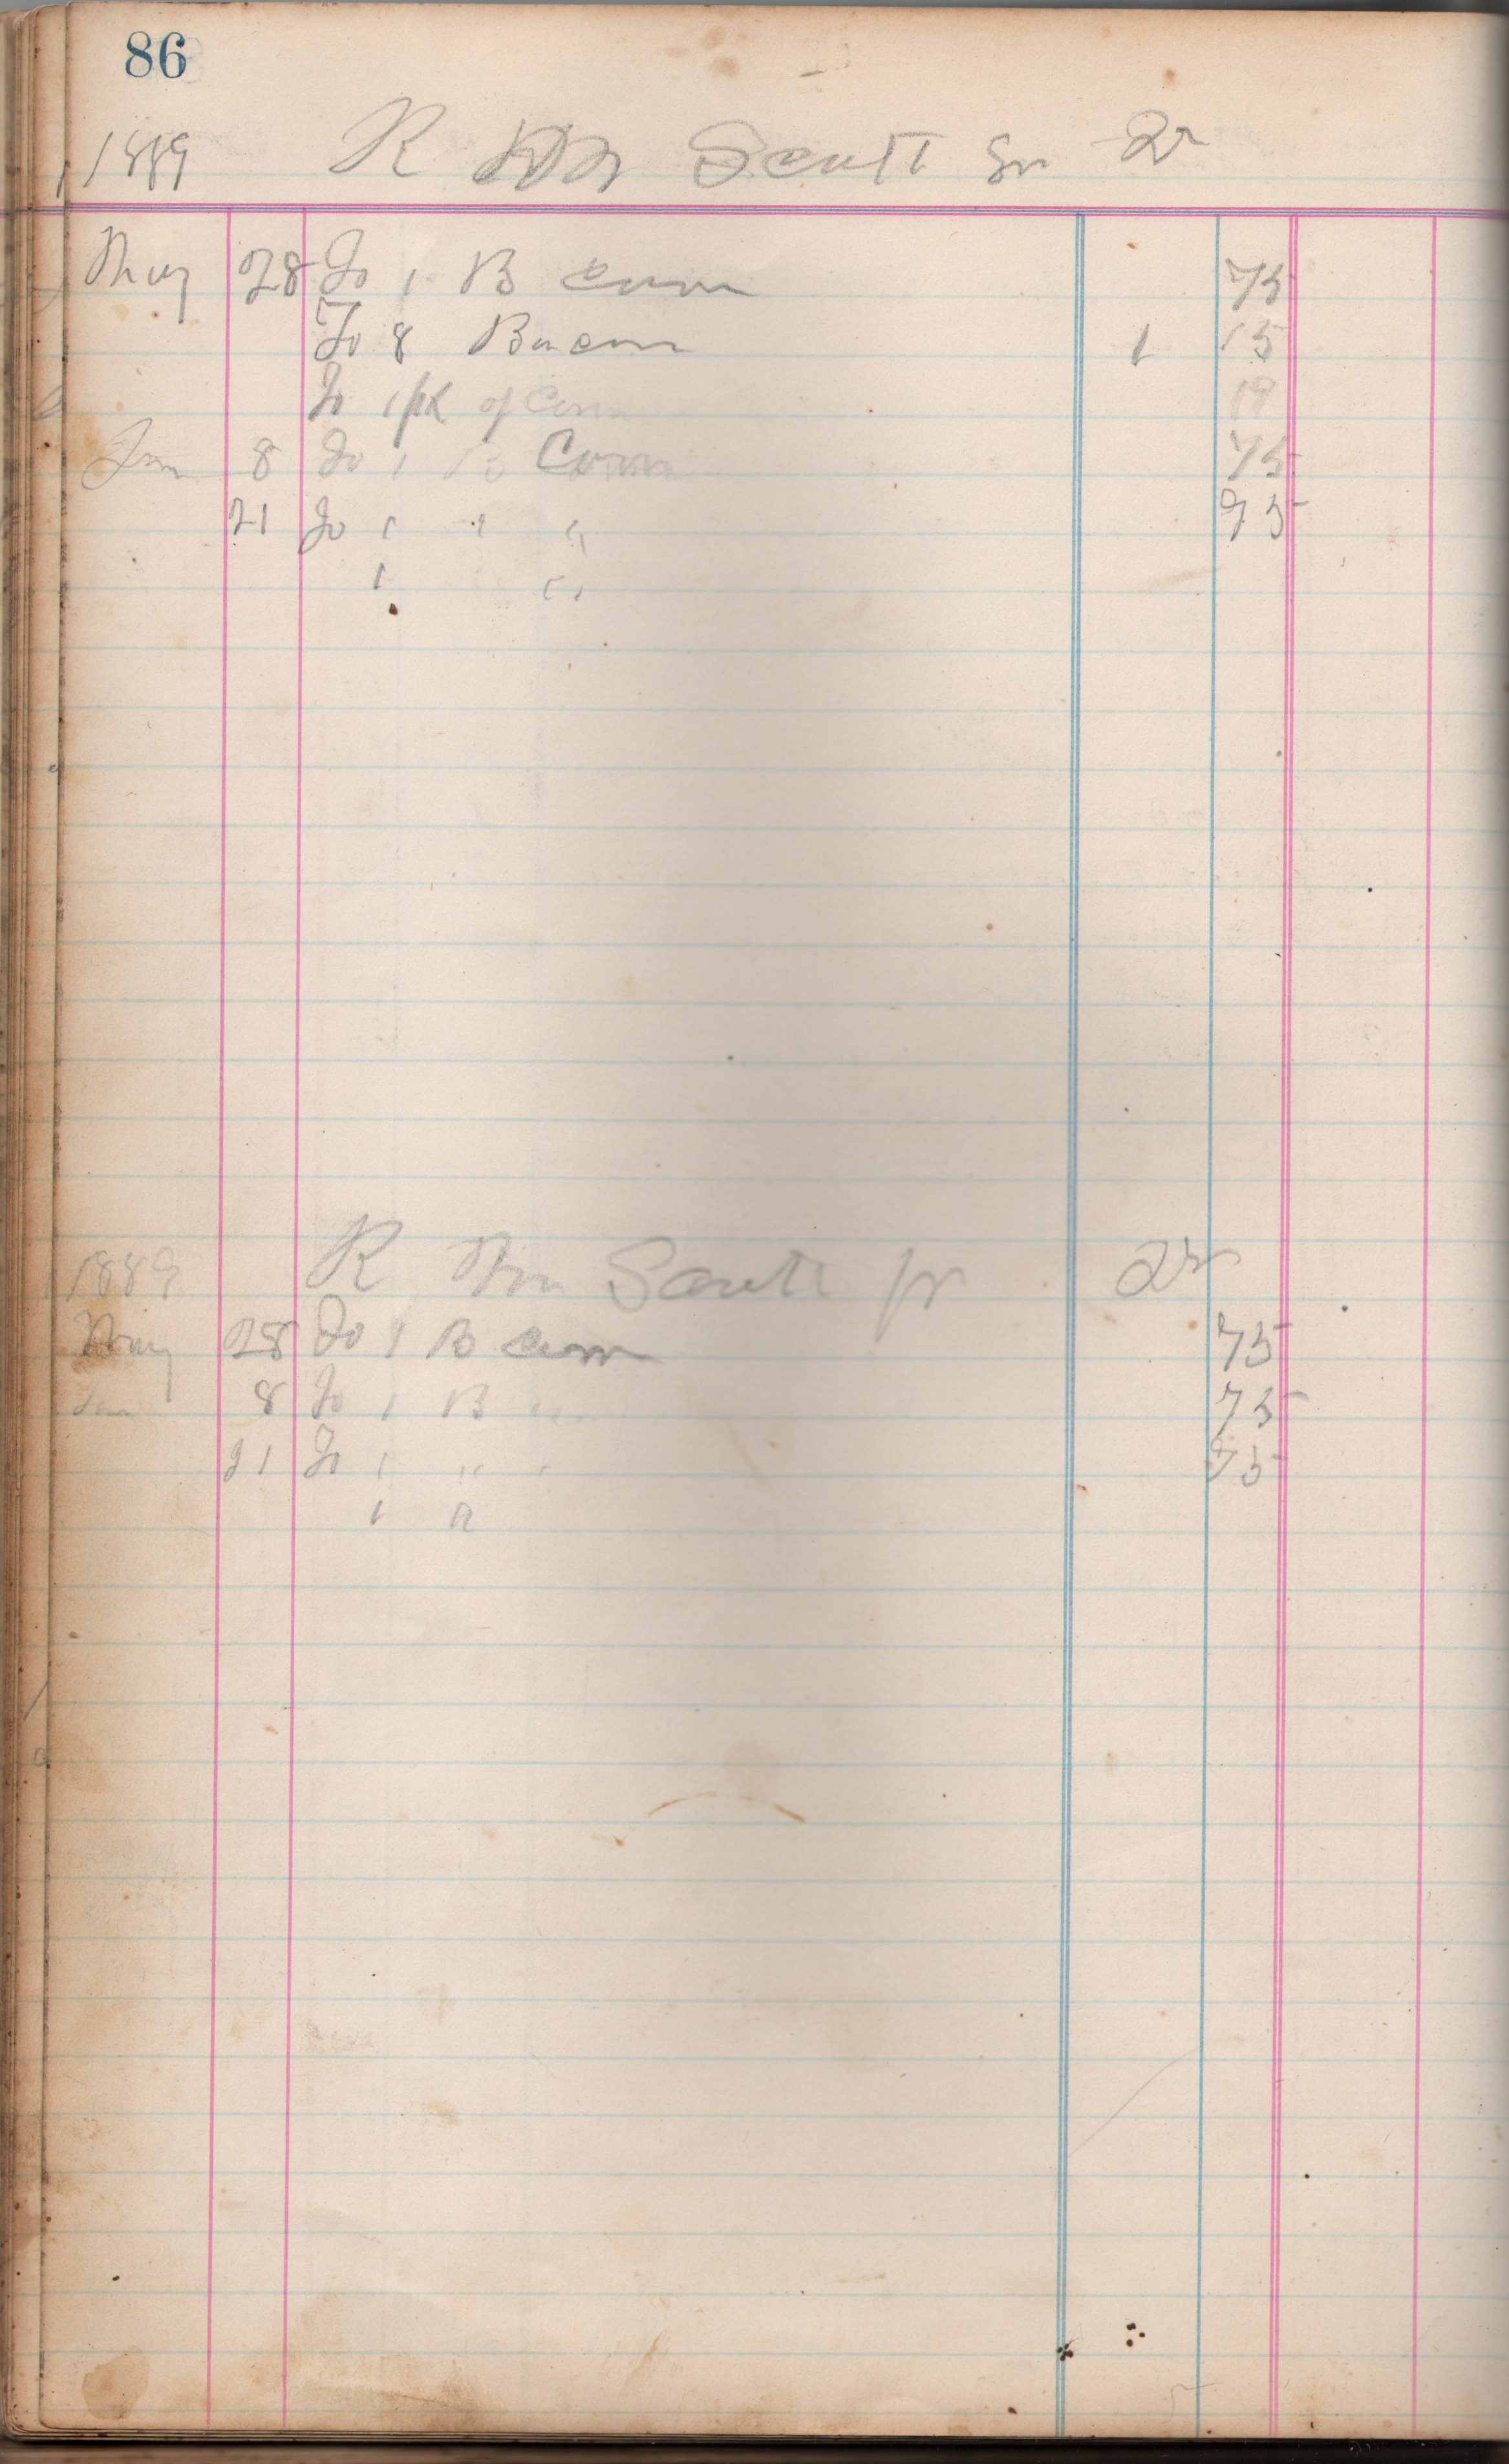 86
1889 R M Scott Sr Dr
May 28 To 1 B corn 75
To 8 Bacon 1 15
To 1 pk of Corn 19
Jun 8 To 1 B Corn 75
21 To 1 " " 75
1 "
1889 R M Scott Jr Dr
May 28 To 1 B corn 75
Jun 8 To 1 B corn 75
21 To 1 " " 75
1 "